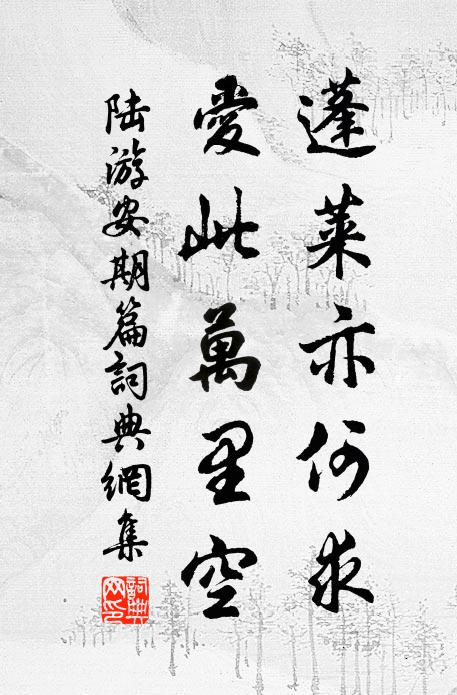 蓬萊亦何求
愛此萬里空
陆游安期篇詞典網集
詞典網印